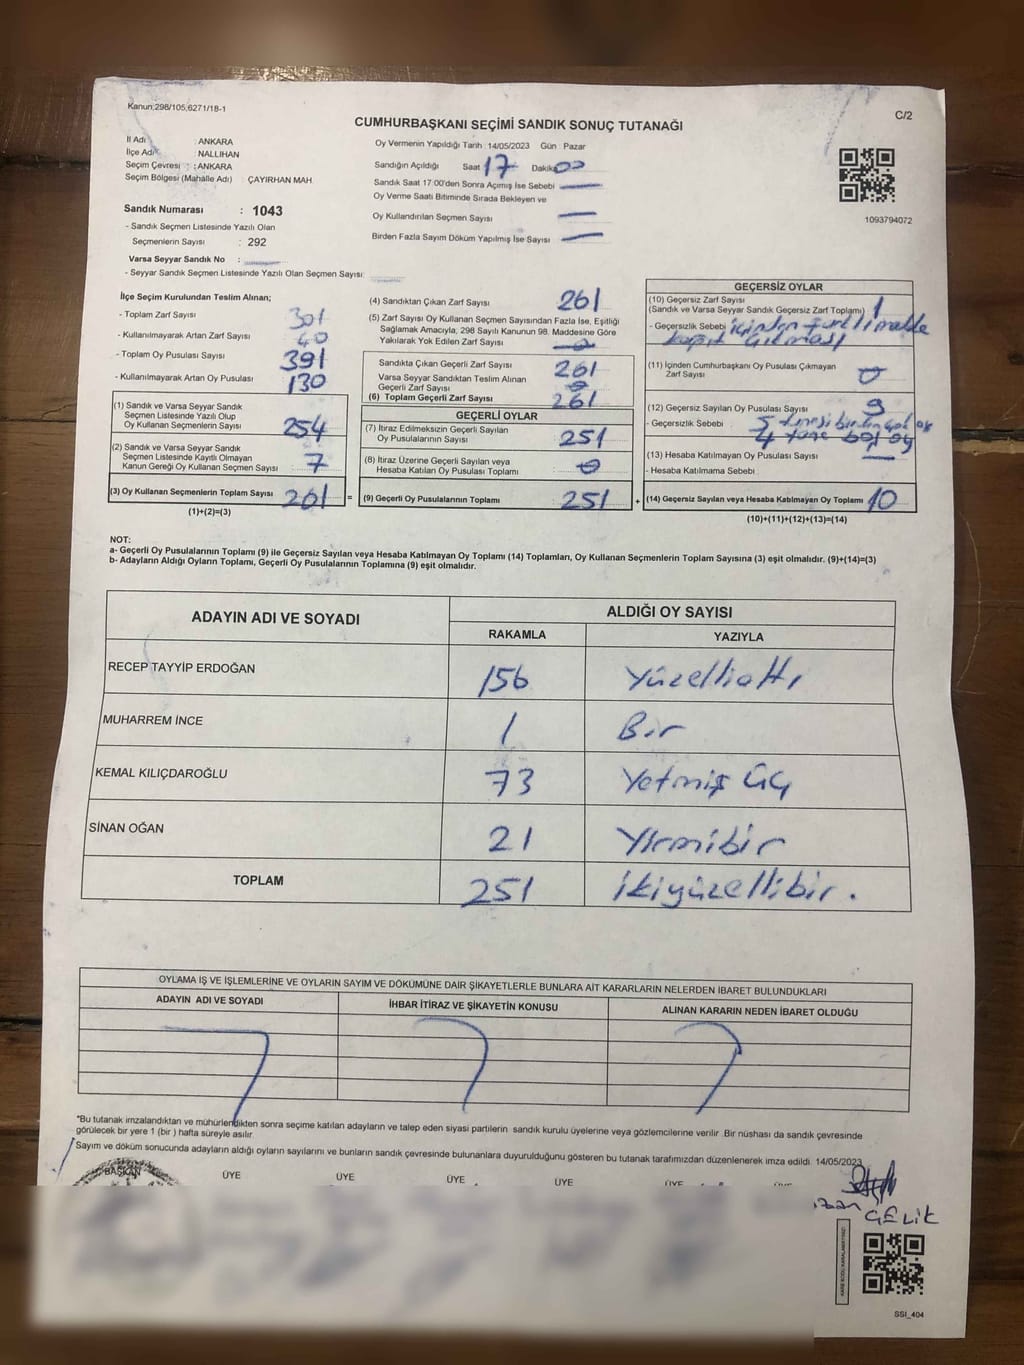 Kanun;298/105,6271/18-1
C/2
CUMHURBAŞKANI SEÇİMİ SANDIK SONUÇ TUTANAĞI
İl Adı : ANKARA
İlçe Adı : NALLIHAN
Seçim Çevresi : ANKARA
Seçim Bölgesi (Mahalle Adı) : ÇAYIRHAN MAH.
Sandık Numarası : 1043
- Sandık Seçmen Listesinde Yazılı Olan
Seçmenlerin Sayısı : 292
Varsa Seyyar Sandık No :
- Seyyar Sandık Seçmen Listesinde Yazılı Olan Seçmen Sayısı:
Oy Vermenin Yapıldığı Tarih : 14/05/2023 Gün : Pazar
Sandığın Açıldığı Saat 17 Dakika 00
Sandık Saat 17:00'den Sonra Açılmış İse Sebebi
Oy Verme Saati Bitiminde Sırada Bekleyen ve
Oy Kullandırılan Seçmen Sayısı
Birden Fazla Sayım Döküm Yapılmış İse Sayısı
1093794072
İlçe Seçim Kurulundan Teslim Alınan;
- Toplam Zarf Sayısı 301
- Kullanılmayarak Artan Zarf Sayısı 40
- Toplam Oy Pusulası Sayısı 391
- Kullanılmayarak Artan Oy Pusulası 130
(1) Sandık ve Varsa Seyyar Sandık
Seçmen Listesinde Yazılı Olup
Oy Kullanan Seçmenlerin Sayısı 254
(2) Sandık ve Varsa Seyyar Sandık
Seçmen Listesinde Kayıtlı Olmayan
Kanun Gereği Oy Kullanan Seçmen Sayısı 7
(3) Oy Kullanan Seçmenlerin Toplam Sayısı 261 =
(1)+(2)=(3)
(4) Sandıktan Çıkan Zarf Sayısı 261
(5) Zarf Sayısı Oy Kullanan Seçmen Sayısından Fazla İse, Eşitliği
Sağlamak Amacıyla, 298 Sayılı Kanunun 98. Maddesine Göre
Yakılarak Yok Edilen Zarf Sayısı 0
Sandıkta Çıkan Geçerli Zarf Sayısı 261
Varsa Seyyar Sandıktan Teslim Alınan
Geçerli Zarf Sayısı 0
(6) Toplam Geçerli Zarf Sayısı 261
GEÇERLİ OYLAR
(7) İtiraz Edilmeksizin Geçerli Sayılan
Oy Pusulalarının Sayısı 251
(8) İtiraz Üzerine Geçerli Sayılan veya
Hesaba Katılan Oy Pusulası Toplamı 0
(9) Geçerli Oy Pusulalarının Toplamı 251 +
GEÇERSİZ OYLAR
(10) Geçersiz Zarf Sayısı
(Sandık ve Varsa Seyyar Sandık Geçersiz Zarf Toplamı) 1
- Geçersizlik Sebebi içinden farklı
kağıt çıkması
(11) İçinden Cumhurbaşkanı Oy Pusulası Çıkmayan
Zarf Sayısı 0
(12) Geçersiz Sayılan Oy Pusulası Sayısı 9
- Geçersizlik Sebebi 5 tanesi birden çok oy
4 tane boş oy
(13) Hesaba Katılmayan Oy Pusulası Sayısı
- Hesaba Katılmama Sebebi
(14) Geçersiz Sayılan veya Hesaba Katılmayan Oy Toplamı 10
(10)+(11)+(12)+(13)=(14)
NOT:
a- Geçerli Oy Pusulalarının Toplamı (9) ile Geçersiz Sayılan veya Hesaba Katılmayan Oy Toplamı (14) Toplamları, Oy Kullanan Seçmenlerin Toplam Sayısına (3) eşit olmalıdır. (9)+(14)=(3)
b- Adayların Aldığı Oyların Toplamı, Geçerli Oy Pusulalarının Toplamına (9) eşit olmalıdır.
ADAYIN ADI VE SOYADI ALDIĞI OY SAYISI
RAKAMLA YAZIYLA
RECEP TAYYİP ERDOĞAN 156 Yüzellialtı
MUHARREM İNCE 1 Bir
KEMAL KILIÇDAROĞLU 73 Yetmiş üç
SİNAN OĞAN 21 Yirmibir
TOPLAM 251 ikiyüzellibir.
OYLAMA İŞ VE İŞLEMLERİNE VE OYLARIN SAYIM VE DÖKÜMÜNE DAİR ŞİKAYETLERLE BUNLARA AİT KARARLARIN NELERDEN İBARET BULUNDUKLARI
ADAYIN ADI VE SOYADI İHBAR İTİRAZ VE ŞİKAYETİN KONUSU ALINAN KARARIN NEDEN İBARET OLDUĞU
*Bu tutanak imzalandıktan ve mühürlendikten sonra seçime katılan adayların ve talep eden siyasi partilerin sandık kurulu üyelerine veya gözlemcilerine verilir .Bir nüshası da sandık çevresinde
görülecek bir yere 1 (bir ) hafta süreyle asılır.
Sayım ve döküm sonucunda adayların aldığı oyların sayılarını ve bunların sandık çevresinde bulunanlara duyurulduğunu gösteren bu tutanak tarafımızdan düzenlenerek imza edildi. 14/05/2023
BAŞKAN ÜYE ÜYE ÜYE ÜYE ÜYE
ÇELİK
SSI_404